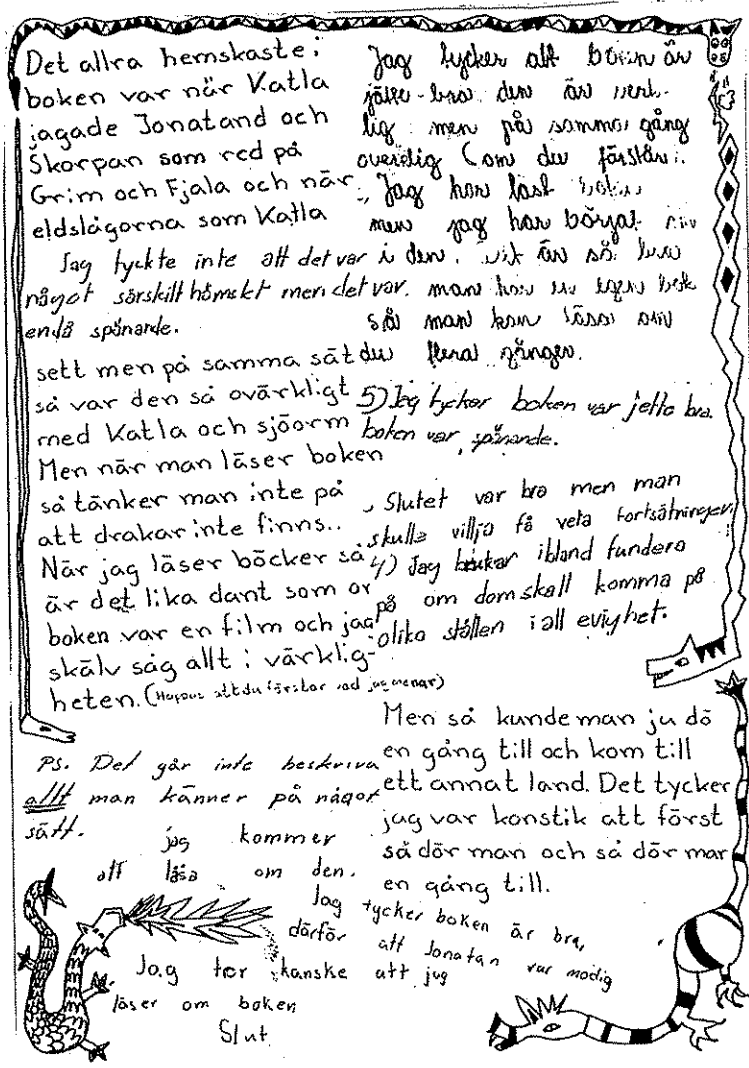 Det allra hemskaste i
boken var när Katla
jagade Jonatand och
Skorpan som red på
Grim och Fjala och när
eldslågorna som Katla
Jag tyckte inte att det var
något särskilt hämskt men det var.
endå spänande.
sett men på samma sät
så var den så ovärkligt
med Katla och sjöorm
Men när man läser boken
så tänker man inte på
att drakar inte finns..
När jag läser böcker så
är det lika dant som or
boken var en film och jag
skälv såg allt i värklig-
heten. (Hoppas att du förstår vad jag menar)
PS. Det går inte beskriva
allt man känner på något
sätt.
jag kommer
att läsa om den.
Jag tycker att boken är
jätte-bra den är verk-
lig men på samma gång
overklig (om du förstår).
Jag har läst boken
men jag har börjat
i den. är så bra
man har en egen bok
så man kan läsa om
den flera gånger.
5) Jag tycker boken var jette bra.
boken var spänande.
Slutet var bra men man
skulle villja få veta fortsätningen,
4) Jag brukar ibland fundera
på om dom skall komma på
olika ställen i all evighet.
Men så kunde man ju dö
en gång till och kom till
ett annat land. Det tycker
jag var konstik att först
så dör man och så dör man
en gång till.
Jag tycker boken är bra,
därför att Jonatan var modig
Jag tror kanske att jag
läser om boken
Slut